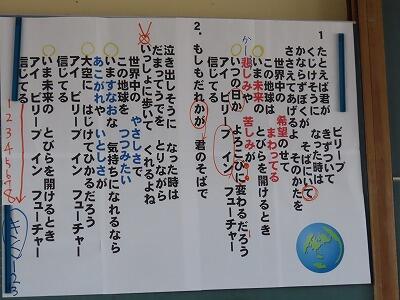 ビリーブ
1
たとえば君が きずついて
くじけそうに なった時は
かならずぼくが そばにいて
ささえてあげるよ そのかたを
世界中の 希望のせて
この地球は まわってる
いま未来の とびらを開けるとき
悲しみや 苦しみが
いつの日か よろこびに変わるだろう
アイ ビリーブ イン フューチャー
信じてる
2.
もしもだれかが 君のそばで
泣き出しそうに なった時は
だまってうでを とりながら
いっしょに歩いて くれるよね
世界中の やさしさで
この地球を つつみたい
いますなおな 気持ちになれるなら
あこがれや いとしさが
大空に はじけてひかるだろう
アイ ビリーブ イン フューチャー
いま未来の とびらを開けるとき
アイ ビリーブ イン フューチャー
信じてる
1 2 3 4 5 6 7 8